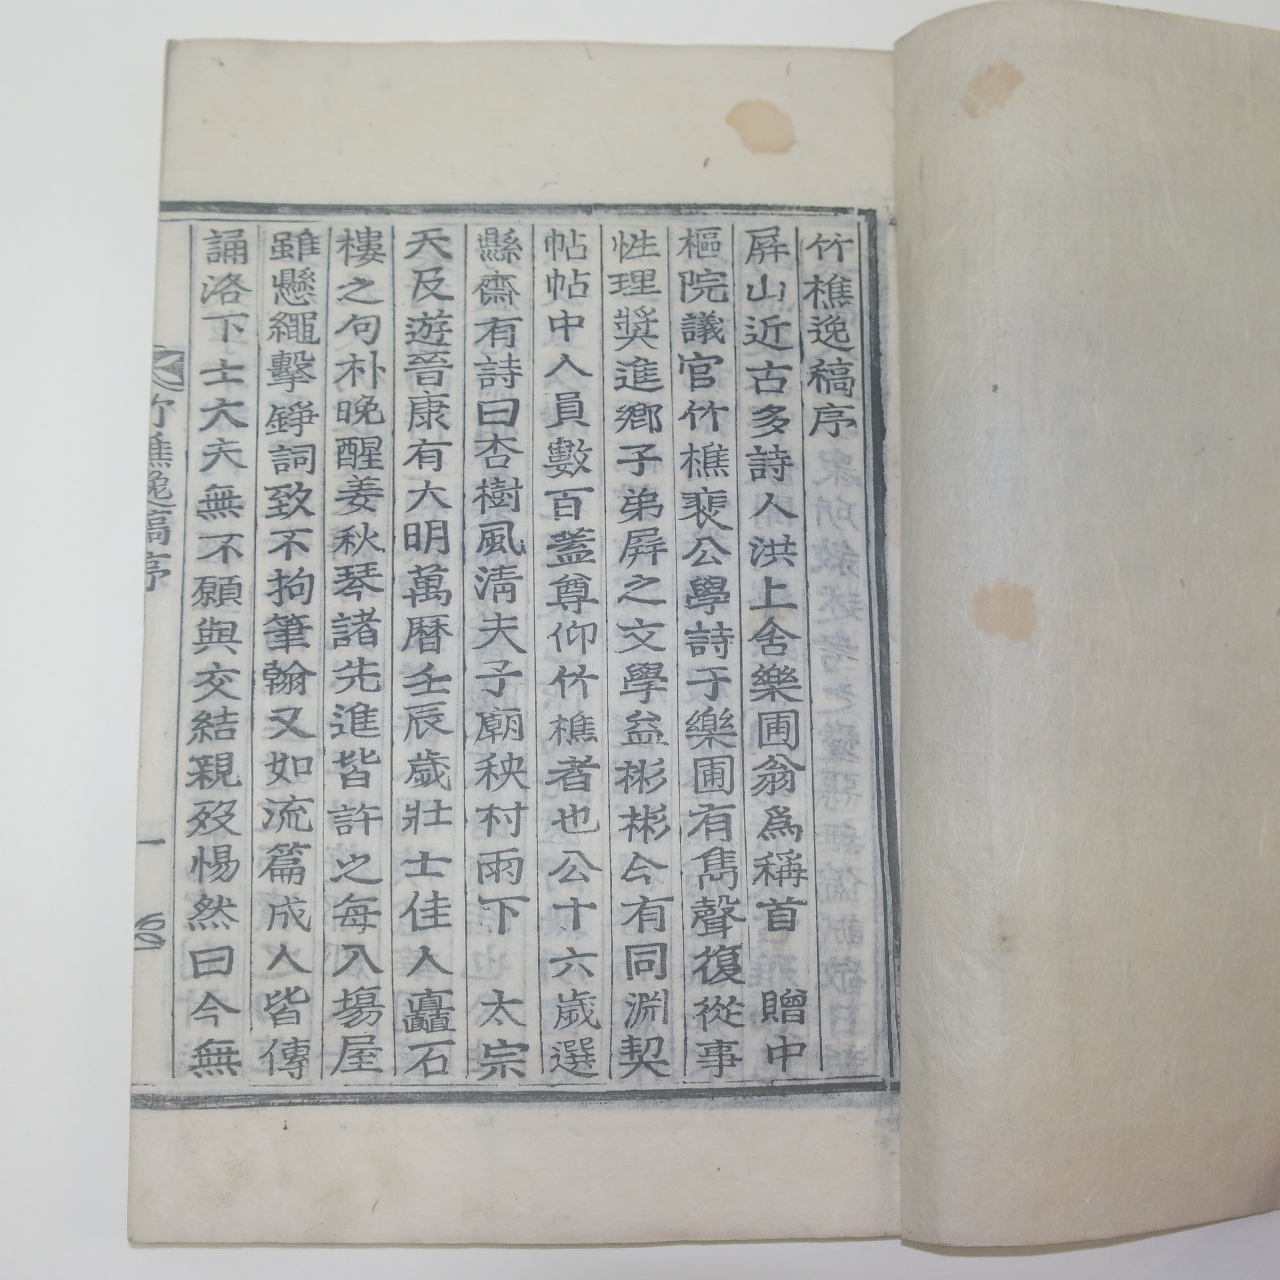 竹樵逸稿序
屛山近古多詩人洪上舍樂圃翁爲稱首 贈中
樞院議官竹樵裵公學詩于樂圃有雋聲復從事
性理奬進鄕子弟屛之文學益彬彬今有同淵契
帖帖中人員數百盖尊仰竹樵者也公十六歲選
縣齋有詩曰杏樹風淸夫子廟秧村雨下 太宗
天及遊晉康有大明萬曆壬辰歲壯士佳人矗石
樓之句朴晩醒姜秋琴諸先進皆許之每入場屋
雖懸繩擊錚詞致不拘筆翰又如流篇成人皆傳
誦洛下士大夫無不願與交結親歿惕然曰今無
竹樵逸稿序
一